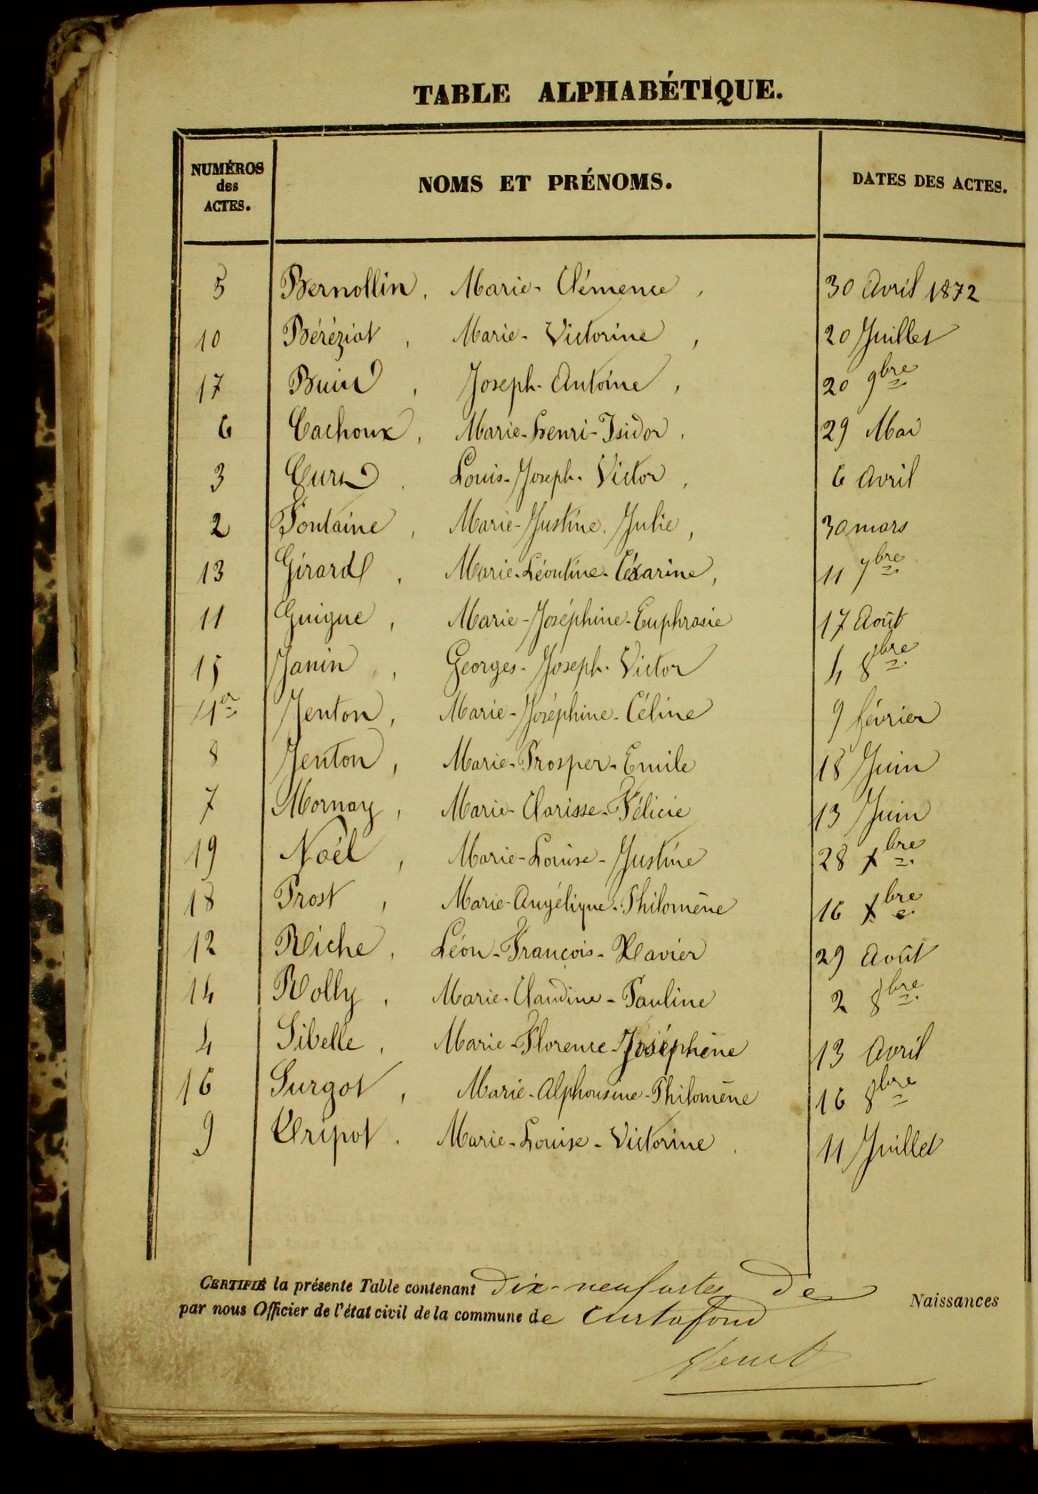 TABLE ALPHABÉTIQUE.
NUMÉROS des ACTES. NOMS ET PRÉNOMS. DATES DES ACTES.
5 Bernollin, Marie-Clémence, 30 Avril 1872
10 Béréziat, Marie-Victorine, 20 Juillet
17 Buis, Joseph-Antoine, 20 9bre
6 Cachoux, Marie-Henri-Isidor, 29 Mai
3 Louis-Joseph-Victor, 6 Avril
2 Fontaine, Marie-Justine Julie, 30 mars
13 Girard, Marie-Léontine-Césarine, 11 7bre
11 Guigue, Marie-Joséphine-Euphrasie 17 Août
15 Janin, Georges-Joseph-Victor 4 8bre
1er Jenton, Marie-Joséphine-Céline 9 février
8 Jenton, Marie-Prosper-Emile 18 Juin
7 Mornay, Marie-Clarisse-Félicie 13 Juin
19 Noël, Marie-Louise-Justine 28 Xbre
18 Prost, Marie-Angélique-Philomène 16 Xbre
12 Riche, Léon-François-Xavier 29 Août
14 Rolly, Marie-Claudine-Pauline 2 8bre
4 Sibelle, Marie-Florence-Joséphine 13 Avril
16 Surgot, Marie-Alphonsine-Philomène 16 8bre
9 Tripot, Marie-Louise-Victorine 11 Juillet
CERTIFIÉ la présente Table contenant Dix-neuf actes De Naissances
par nous Officier de l'état civil de la commune de Curtafond